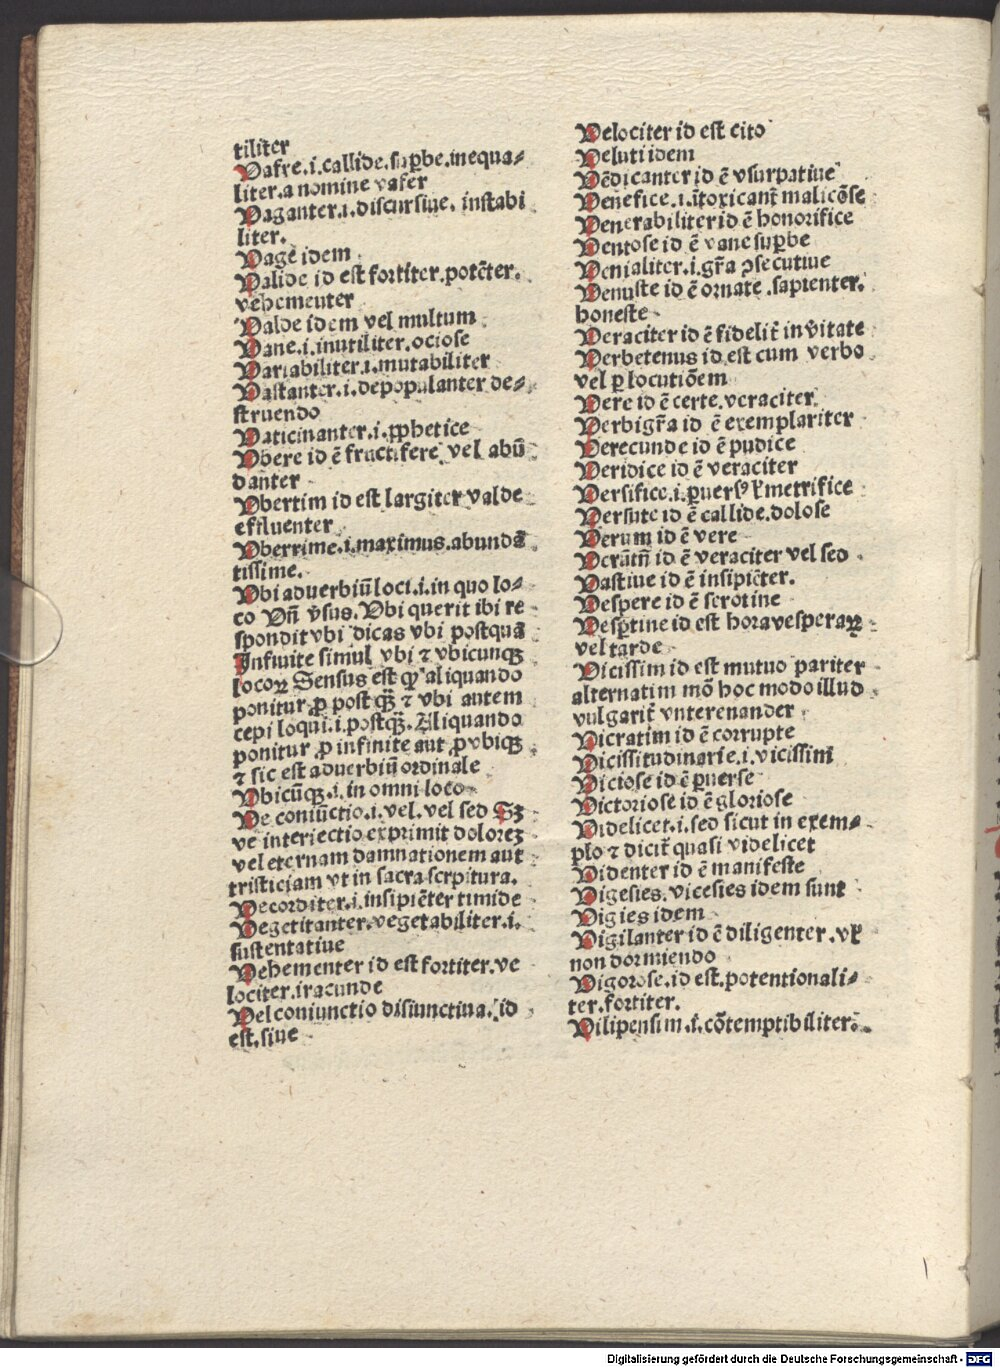 tiliter
Vafre.i.callide.suꝑbe.inequa⸗
liter.a nomine vafer
Vaganter.i.discursiue. instabi
liter.
Vage idem
Valide id est fortiter.potēter.
vehementer
Valde idem vel multum
Vane.i.inutiliter.ociose
Variabiliter.i.mutabiliter
Vastanter.i.depopulanter de⸗
struendo
Vaticinanter.i.ꝓphetice
Vbere id ē fructifere vel abū
danter
Vbertim id est largiter valde
effluenter
Vberrime.i.maximus.abundā
tissime.
Vbi aduerbiū loci.i.in quo lo⸗
co Vn̄ v̄sus.Vbi querit ibi re
spondit vbi dicas vbi postquā
Infinite simul vbi ⁊ vbicunqꝫ
locoꝝ Sensus est ꝙ aliquando
ponitur ꝓ post qꝫ̄ ⁊ vbi autem
cepi loqui.i.postqꝫ̄.Aliquando
ponitur ꝓ infinite aut ꝓ vbiqꝫ
⁊ sic est aduerbiū ordinale
Vbicūqꝫ.i.in omni loco
Ve coniūctio.i.vel.vel sed Sꝫ
ve interiectio exprimit doloreꝫ
vel eternam damnationem aut
tristiciam vt in sacra scrpitura.
Vecorditer.i.insipiēter timide
Vegetitanter.vegetabiliter.i.
sustentatiue
Vehementer id est fortiter.ve
lociter.iracunde
Vel coniunctio disiunctiua. id
est.siue
Velociter id est cito
Veluti idem
Vēdicanter id ē vsurpatiue
Venefice.i.ītoxicant̄ malicōse
Venerabiliter id ē honorifice
Ventose id ē vane suꝑbe
Venialiter.i.gr̄a ꝯsecutiue
Venuste id ē ornate .sapienter.
honeste
Veraciter id ē fidelit̄ in v̄itate
Verbetenus id est cum verbo
vel ꝑ locutiōem
Vere id ē certe.veraciter
Verbigr̄a id ē exemplariter
Verecunde id ē pudice
Veridice id ē veraciter
Versifice.i.ꝑ versꝰ ꝉ metrifice
Versute id ē callide.dolose
Verum id ē vere
Verūtn̄ id ē veraciter vel sed
Vastiue id ē insipiēter.
Vespere id ē serotine
Vesꝑtine id est hora vesperaꝝ
vel tarde
Vicissim id est mutuo pariter
alternatim mō hoc modo illud
vulgarit̄ vnterenander
Vicratim id ē corrupte
Vicissitudinarie.i.vicissim
Viciose id ē ꝑuerse
Victoriose id ē gloriose
Videlicet.i.sed sicut in exem⸗
plo ⁊ dicit̄ quasi videlicet
Videnter id ē manifeste
Vigesies.vicesies idem sunt
Vigies idem
Vigilanter id ē diligenter.vꝉ
non dormiendo
Vigorose.id est.potentionali⸗
ter.fortiter.
Vilipensim.i.cōtemptibiliter.
Digitalisierung gefördert durch die Deutsche Forschungsgemeinschaft - DFG